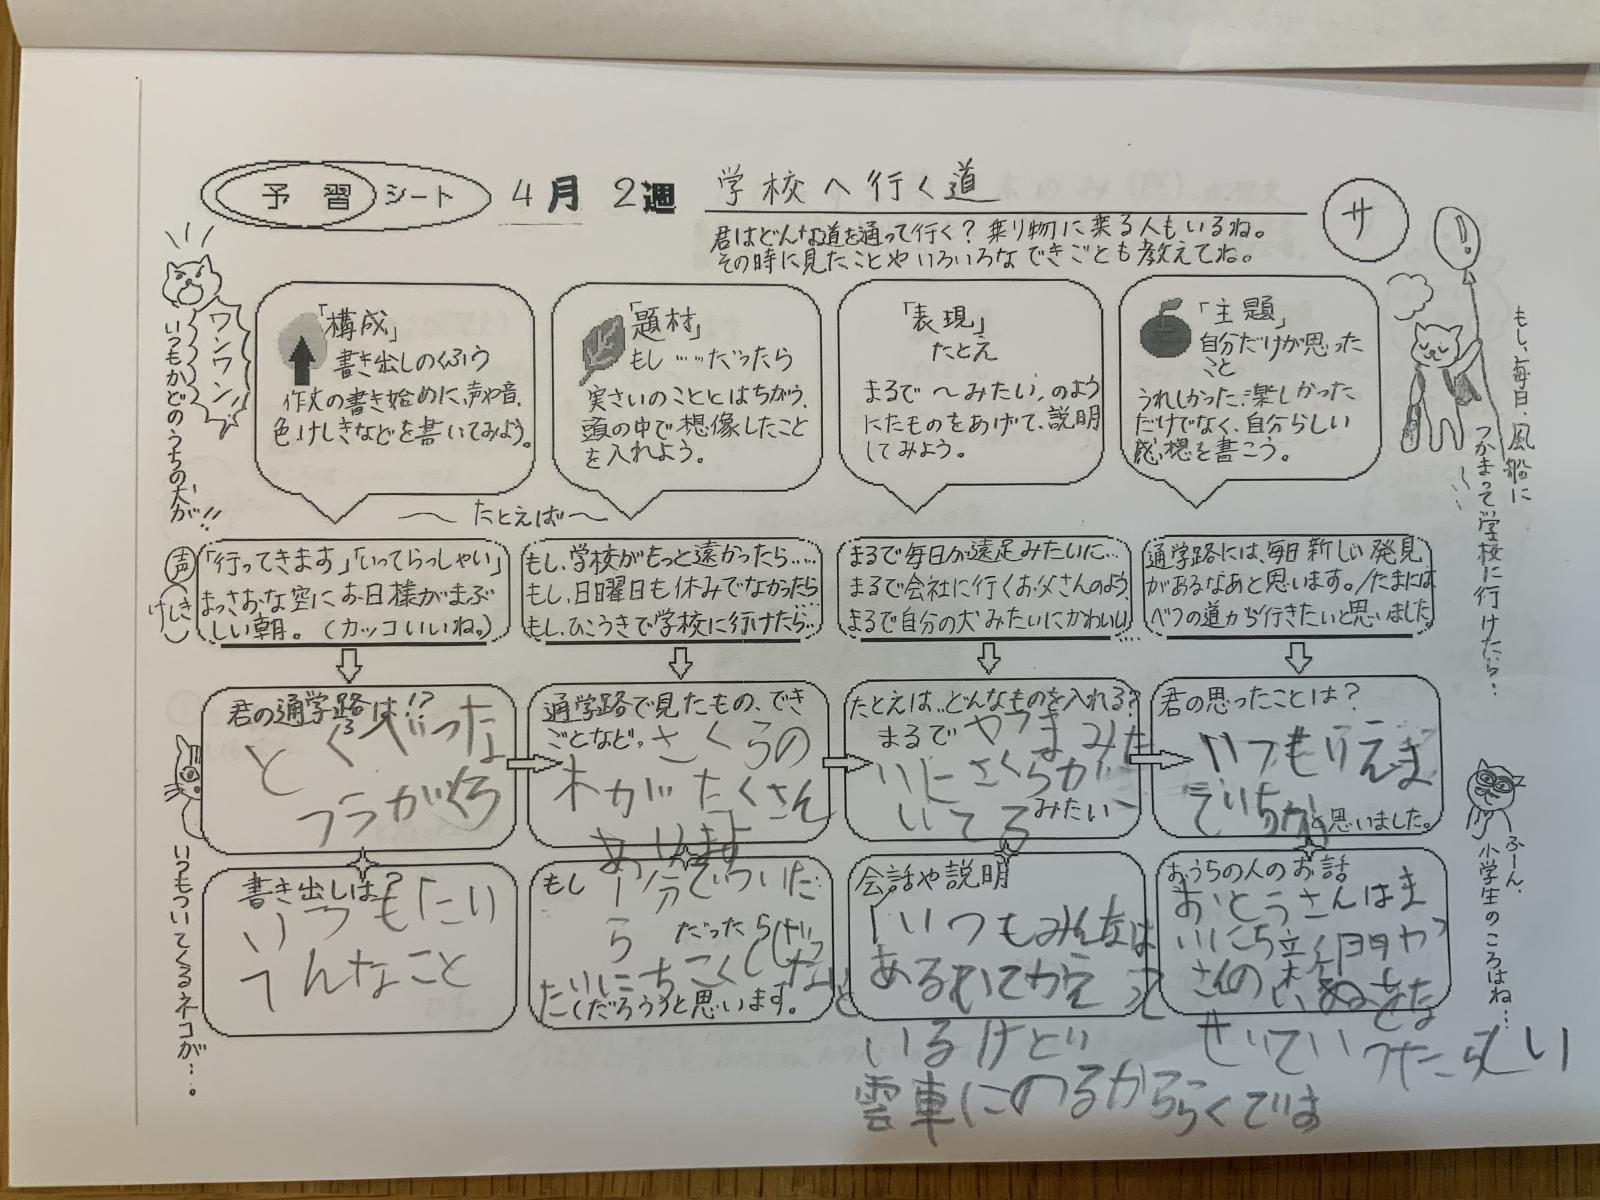 予習シート 4月 2週 学校へ行く道
サ
君はどんな道を通って行く？乗り物に乗る人もいるね。
その時に見たことやいろいろなできごとも教えてね。
ワンワン！
いつもかどのうちの犬が!!
「構成」
書き出しのくふう
作文の書き始めに、声や音、
色、けしきなどを書いてみよう。
「題材」
もし……だったら
実さいのこととはちがう、
頭の中で想像したこと
を入れよう。
「表現」
たとえ
まるで〜みたい、のよう
にたものをあげて、説明
してみよう。
「主題」
自分だけが思った
こと
うれしかった、楽しかった
だけでなく、自分らしい
感想を書こう。
もし、毎日、風船に
つかまって学校に行けたら…
〜たとえば〜
声
けしき
「行ってきます」「いってらっしゃい」
まっさおな空にお日様がまぶ
しい朝。（カッコいいね。）
もし、学校がもっと遠かったら……
もし、日曜日も休みでなかったら…
もし、ひこうきで学校に行けたら…
まるで毎日が遠足みたいに…
まるで会社に行くお父さんのよう、
まるで自分の犬みたいにかわいい…
通学路には、毎日新しい発見
があるなあと思います。/たまには
べつの道から行きたいと思いました
君の通学路は!?
とくべつな
通学路で見たもの、でき
ごとなど。さくらの
木がたくさん
あります
たとえは…どんなものを入れる？
まるでやまみた
いにさくらが
いてるみたい
君の思ったことは？
いつもけえま
でいちかと思いました。
書き出しは？
いつもたい
へんなこと
もし一分でついた
らだったら
たいにちこくしないと
たく（だろう）と思います。
会話や説明
「いつもみんなは
あるいてかえって
いるけど
電車にのるかららくでは
おうちの人のお話
おとうさんはま
いにち新聞やっ
さんの
せいてい
いつもついてくるネコが…。
ふーん、
小学生のころはね…